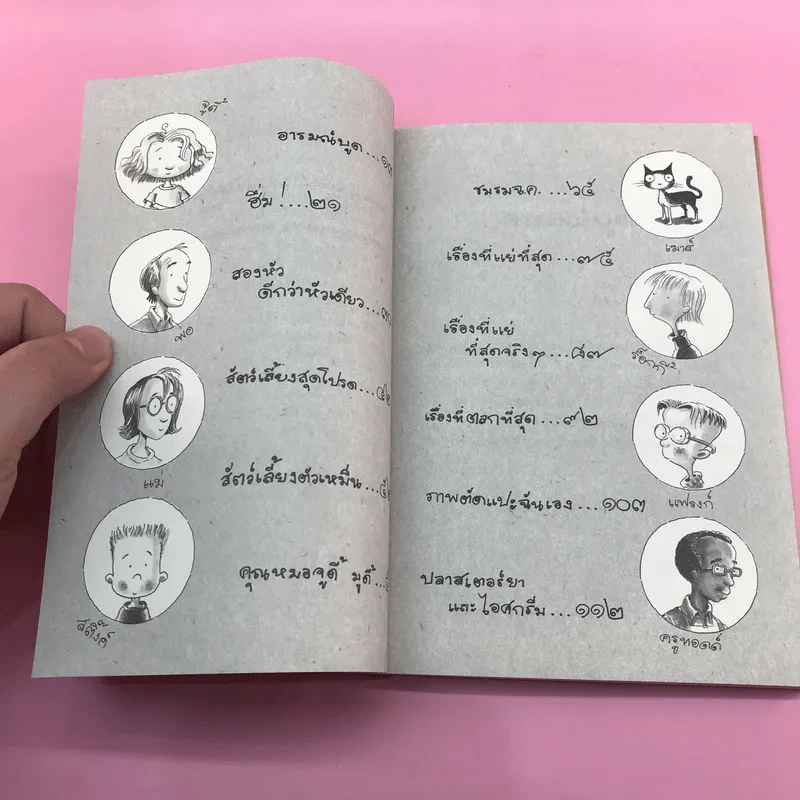 จูดี้
อารมณ์บูด...๑๓
ฮึ่ม!...๒๑
สองหัว
ดีกว่าหัวเดียว...
พ่อ
สัตว์เลี้ยงสุดโปรด...
แม่
สัตว์เลี้ยงตัวเหม็น...
คุณหมอจูดี้ มู้ดี้...
สติ๊งค์
ชมรมฉ.ค. ...๖๕
เมาส์
เรื่องที่แย่ที่สุด...๗๕
เรื่องที่แย่
ที่สุดจริงๆ...๘๗
ร็อกกี้
เรื่องที่ตลกที่สุด...๙๒
ภาพตัดแปะฉันเอง...๑๐๓
แฟรงก์
ปลาสเตอร์ยา
และไอศกรีม...๑๑๒
ครูทอดด์